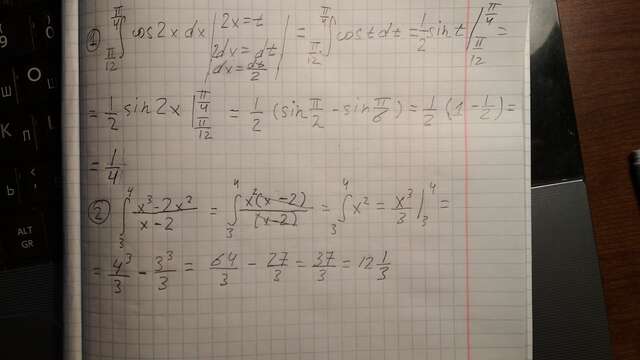 ① ∫_{π/12}^{π/4} cos2x dx | 2x=t 2dx=dt dx=dt/2 | = ∫_{π/12}^{π/4} cost dt = 1/2 sint |_{π/12}^{π/4} =
= 1/2 sin2x |_{π/12}^{π/4} = 1/2 (sin π/2 - sin π/6) = 1/2 (1 - 1/2) =
= 1/4
② ∫_3^4 (x³-2x²)/(x-2) = ∫_3^4 x²(x-2)/(x-2) = ∫_3^4 x² = x³/3 |_3^4 =
= 4³/3 - 3³/3 = 64/3 - 27/3 = 37/3 = 12 1/3
9
О
Ш
Л
К
П
Ь
ALT GR